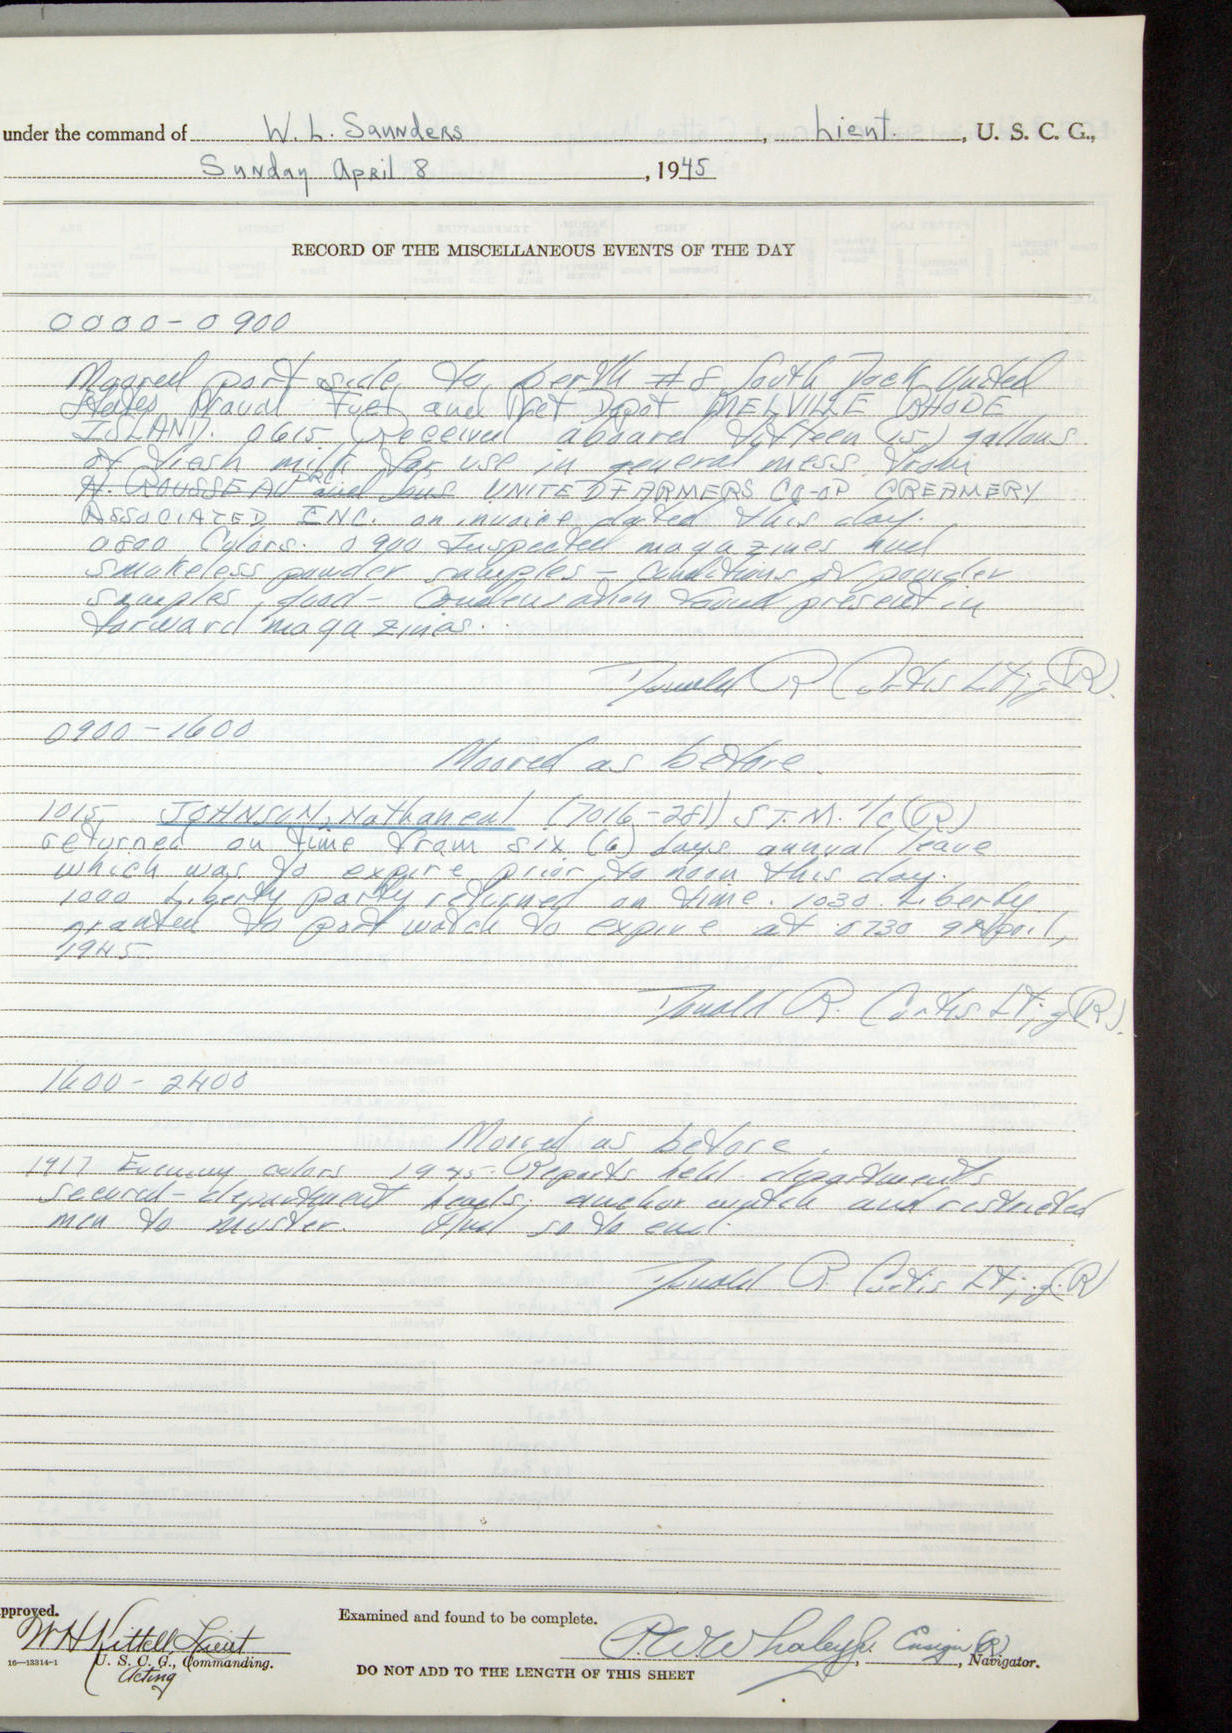 under the command of W. L. Saunders, Lieut., U. S. C. G.,
Sunday April 8, 1945
RECORD OF THE MISCELLANEOUS EVENTS OF THE DAY
0000-0900
Moored port side to berth #8 South Dock United
States Naval Fuel and Net Depot MELVILLE RHODE
ISLAND. 0615 Received aboard fifteen (15) gallons
of fresh milk for use in general mess from
H. ROUSSEAU and Sons DRC UNITED FARMERS CO-OP CREAMERY
ASSOCIATED INC. on invoice dated this day.
0800 Colors. 0900 Inspected magazines and
smokeless powder samples - Conditions of powder
samples, good - Condensation found present in
forward magazines.
Donald R Curtis Lt;jg(R).
0900-1600
Moored as before.
1015 JOHNSON, Nathaneal (7016-281) ST.M. 1/c (R)
returned on time from six (6) days annual leave
which was to expire prior to noon this day.
1000 Liberty party returned on time. 1030 Liberty
granted to port watch to expire at 0730 9 April,
1945.
Donald R. Curtis Lt;jg(R).
1600-2400
Moored as before.
1917 Evening colors 1945. Reports held departments
secured - department heads, anchor watch and restricted
men to muster. And so to end.
Donald R. Curtis Lt;jg(R)
pproved.
W H Kittell, Lieut
16-13314-1 U. S. C. G., Commanding.
Acting
Examined and found to be complete.
P.W. Whaley Jr. Ensign (R), Navigator.
DO NOT ADD TO THE LENGTH OF THIS SHEET